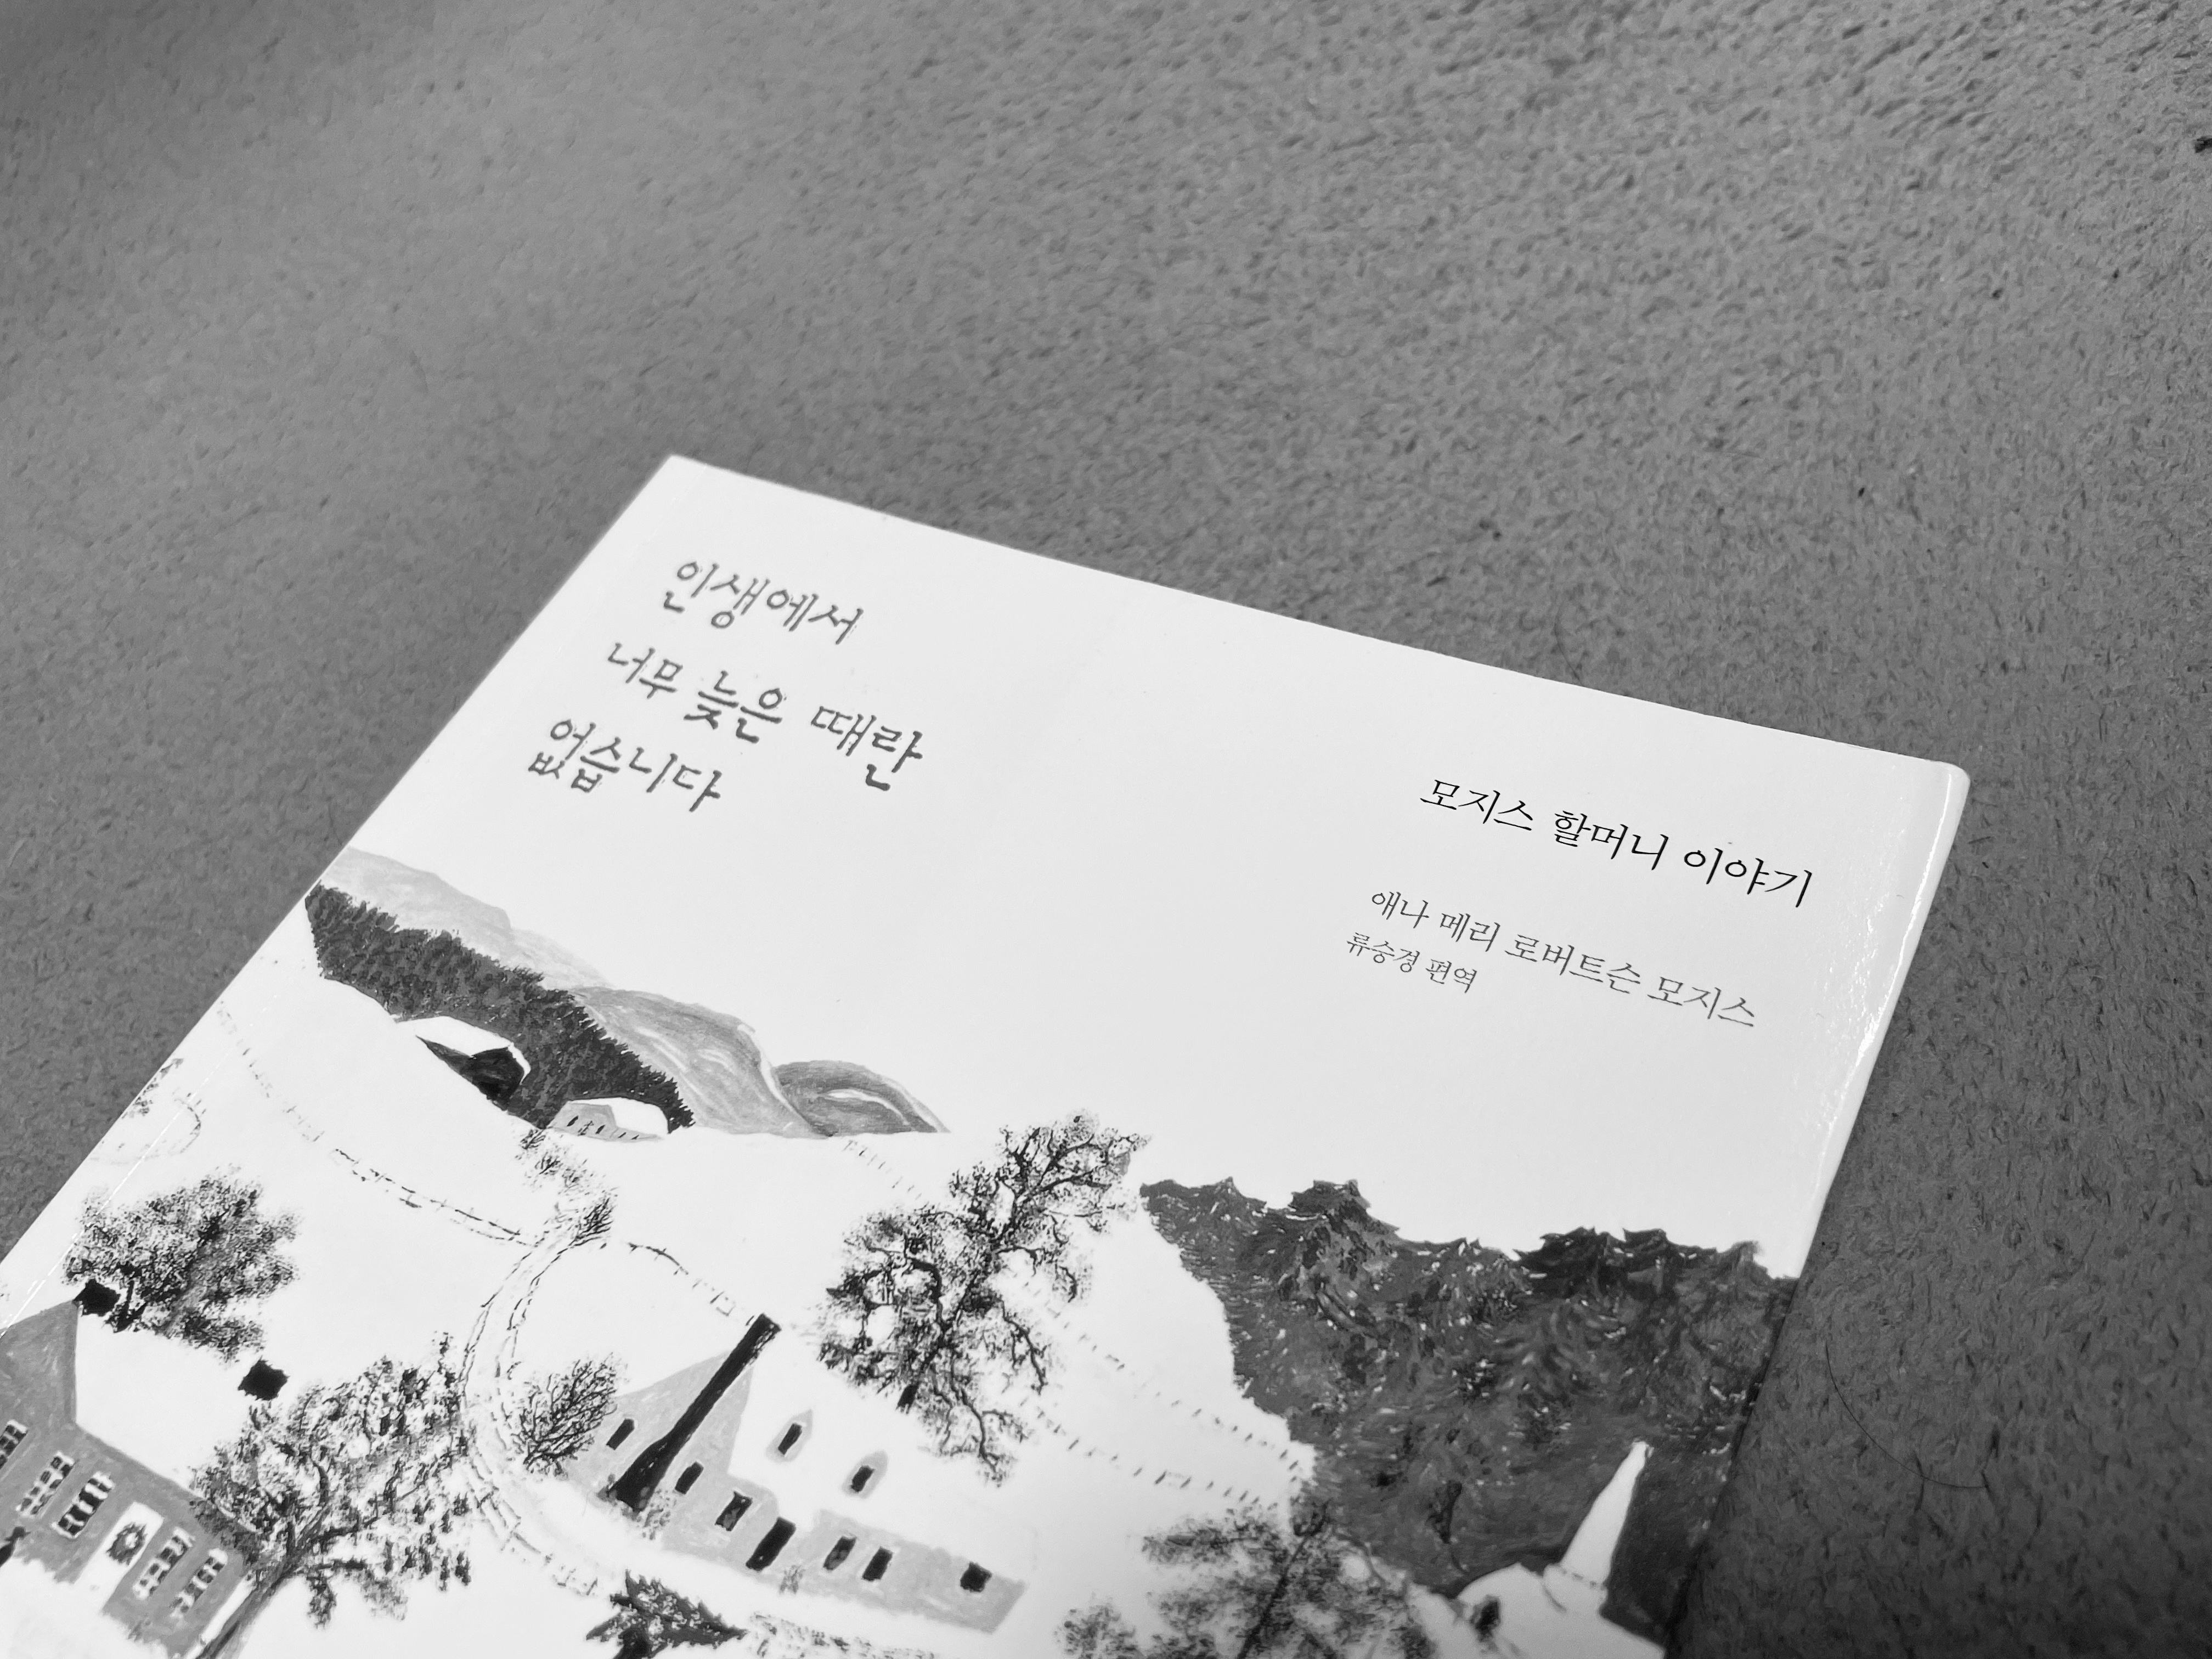 인생에서
너무 늦은 때란
없습니다
모지스 할머니 이야기
애나 메리 로버트슨 모지스
류승경 편역